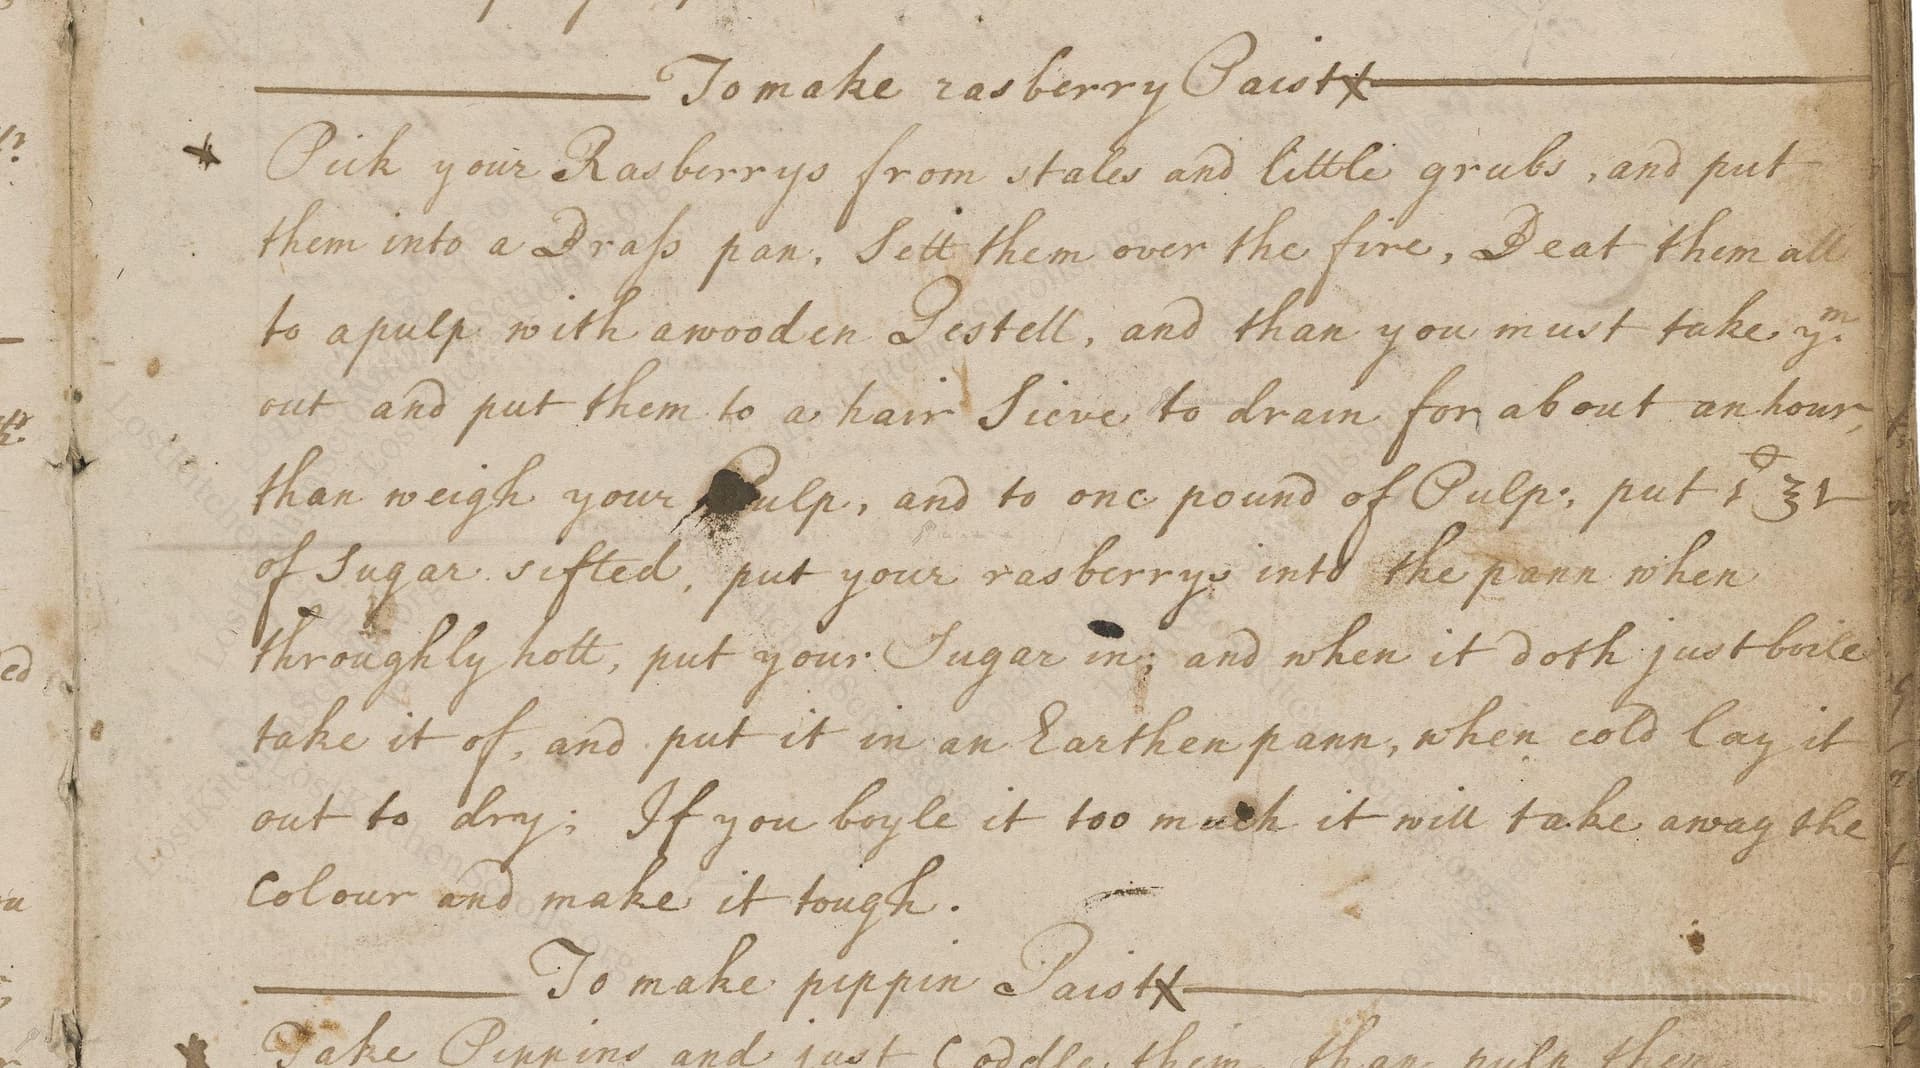 To make rasberry Paist
Pick your Rasberrys from stales and little grubs, and put
them into a Brass pan, Sett them over the fire, Beat them all
to a pulp with a wooden Pestell, and than you must take ym.
out and put them to a hair Sieve to drain for about an hour,
than weigh your Pulp, and to one pound of Pulp, put 1
of Sugar sifted, put your rasberrys into the pann when
throughly hott, put your Sugar in; and when it doth just boile
take it of, and put it in an Earthen pann, when cold lay it
out to dry; If you boyle it too much it will take away the
Colour and make it tough.
To make pippin Paist
Take Pippins and just Coddle them, than pulp them
LostKitchenScrolls.org